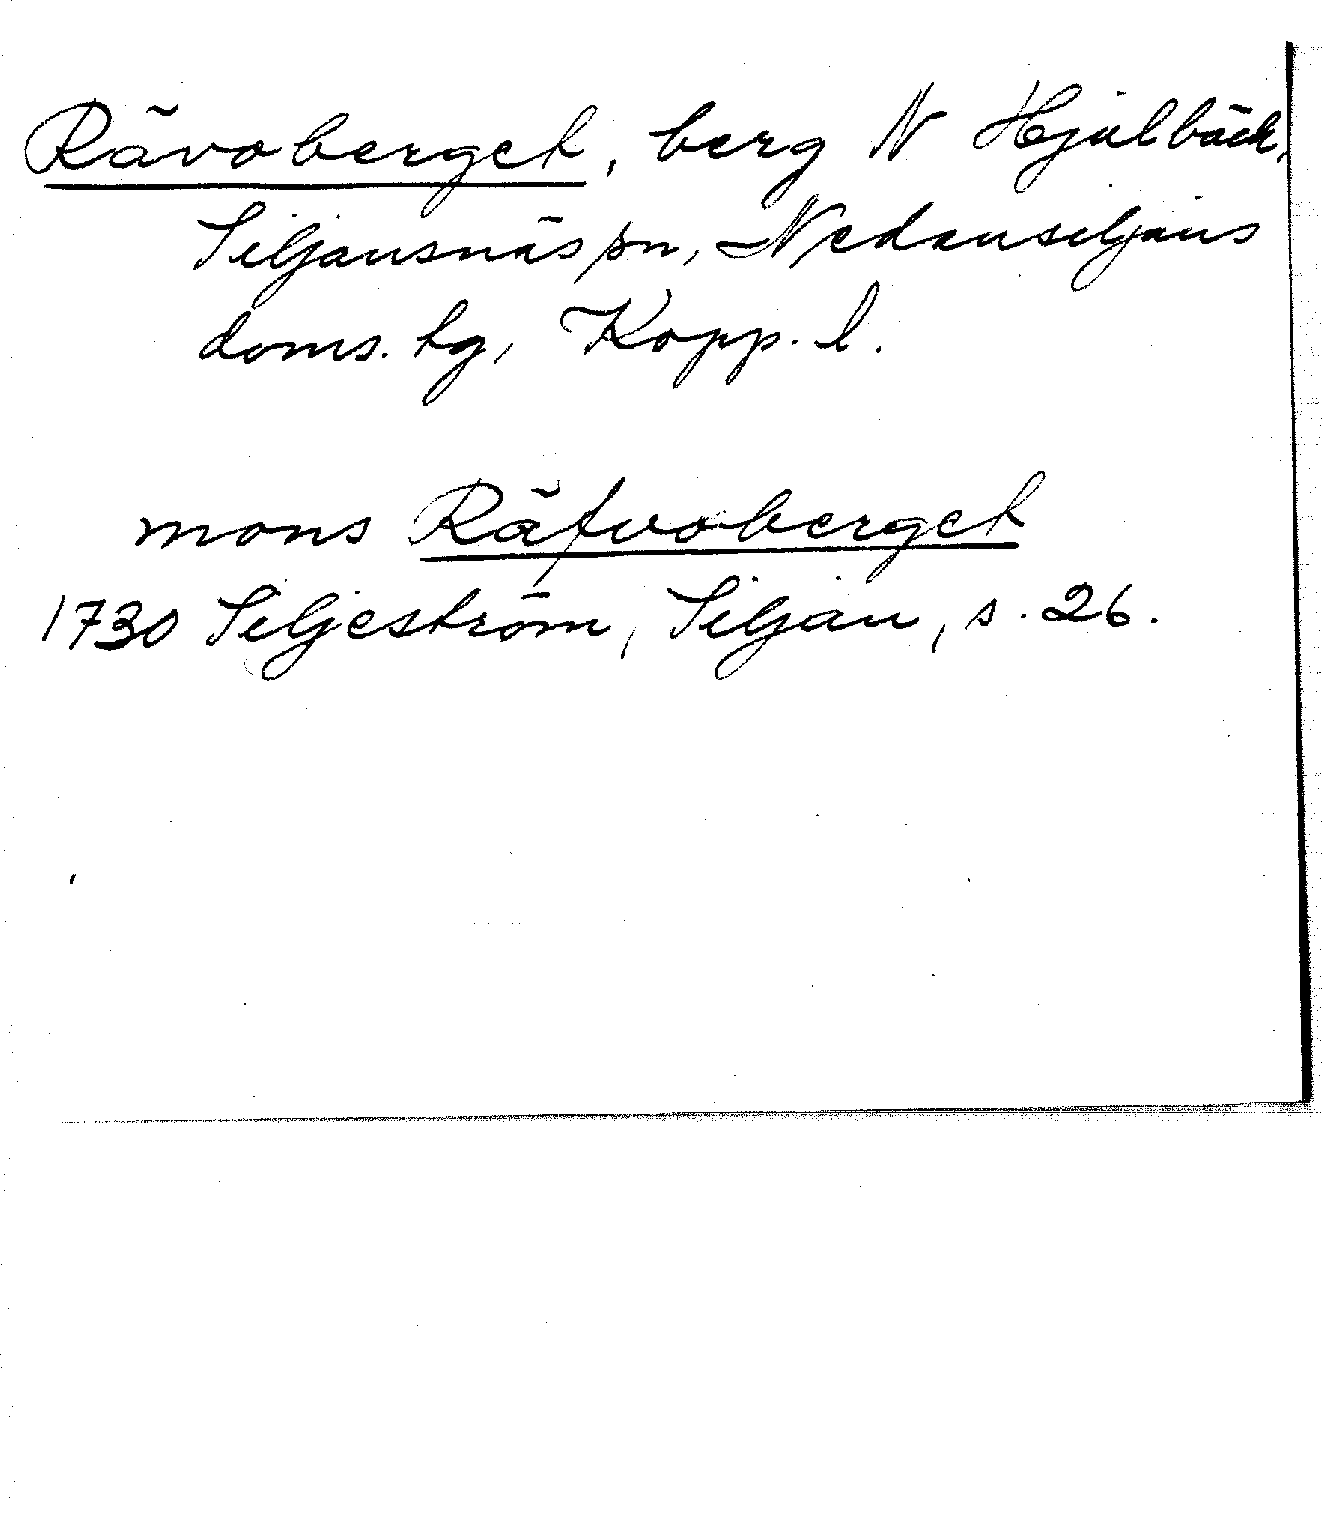 Rävoberget, berg N Hjulbäck,
Siljansnäs sn, Nedansiljans
doms. tg, Kopp. l.
mons Räfvoberget
1730 Siljeström, Siljan, s. 26.